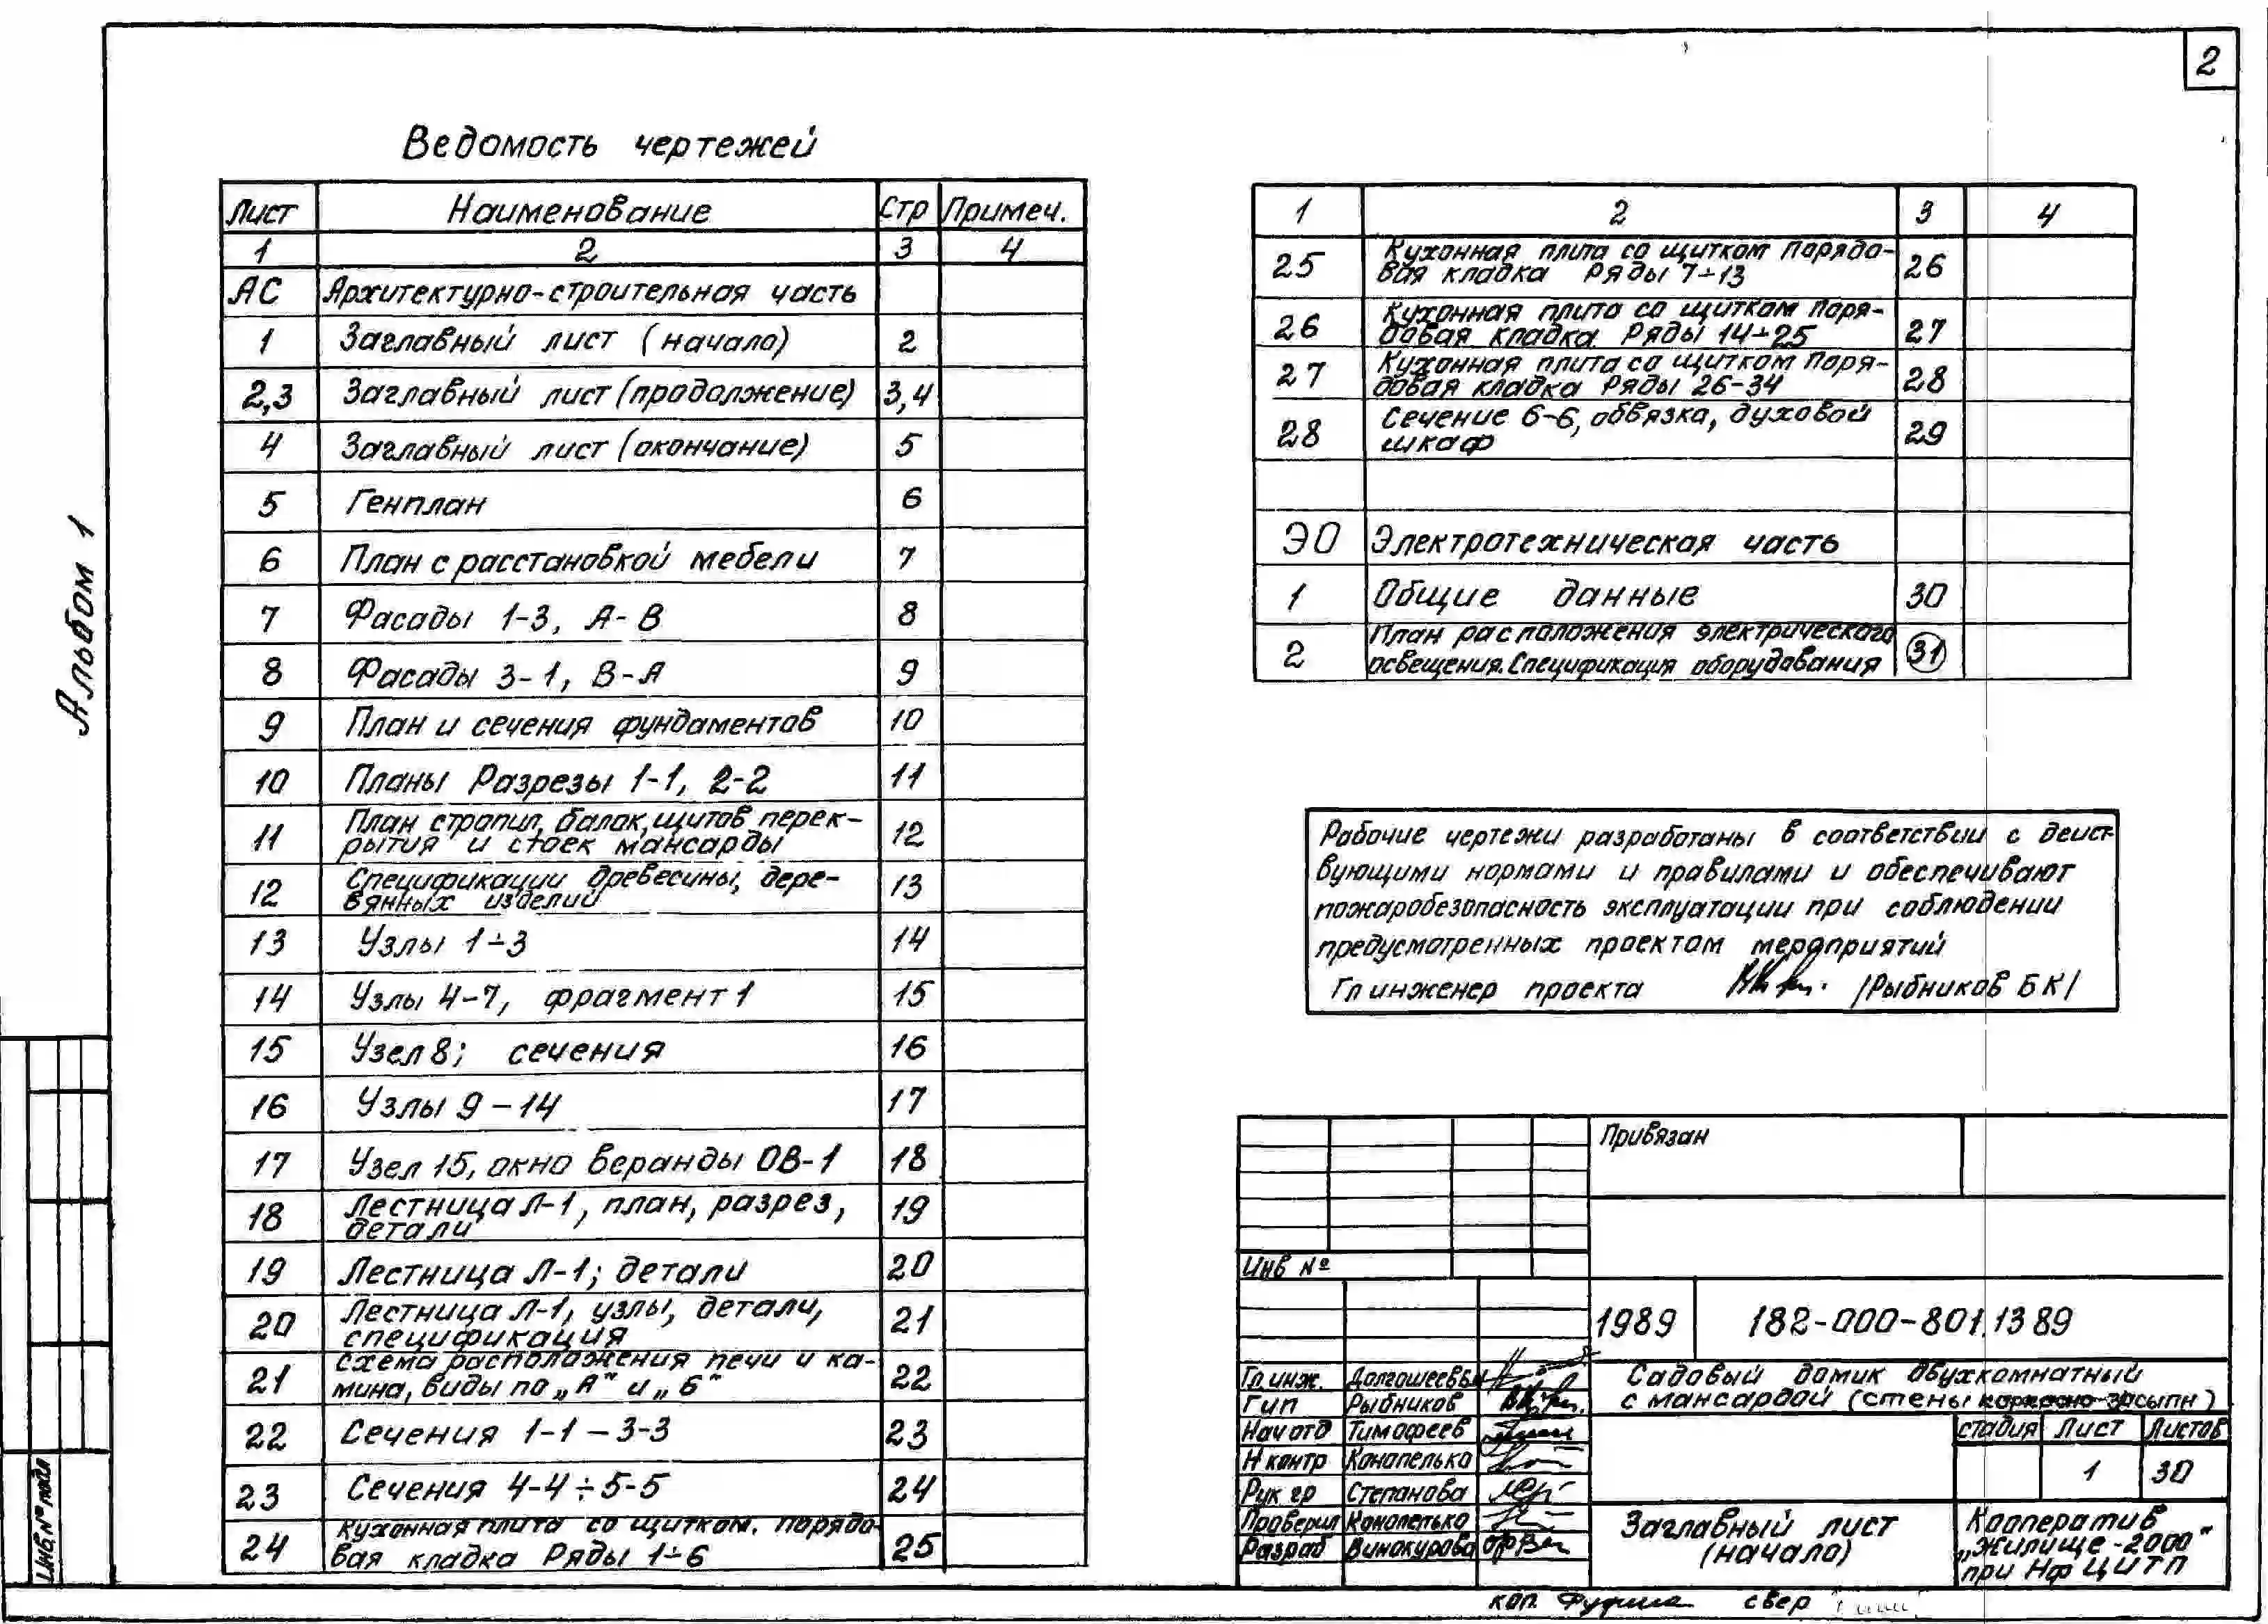 2
Альбом 1
Ведомость чертежей
Лист Наименование Стр Примеч.
1 2 3 4
АС Архитектурно-строительная часть
1 Заглавный лист (начало) 2
2,3 Заглавный лист (продолжение) 3,4
4 Заглавный лист (окончание) 5
5 Генплан 6
6 План с расстановкой мебели 7
7 Фасады 1-3, А-В 8
8 Фасады 3-1, В-А 9
9 План и сечения фундаментов 10
10 Планы Разрезы 1-1, 2-2 11
11 План стропил, балок, щитов перек-
рытия и стоек мансарды 12
12 Спецификации древесины, дере-
вянных изделий 13
13 Узлы 1÷3 14
14 Узлы 4-7, фрагмент 1 15
15 Узел 8; сечения 16
16 Узлы 9-14 17
17 Узел 15, окно веранды ОВ-1 18
18 Лестница Л-1, план, разрез,
детали 19
19 Лестница Л-1; детали 20
20 Лестница Л-1, узлы, детали,
спецификация 21
21 Схема расположения печи и ка-
мина, виды по „А" и „Б" 22
22 Сечения 1-1 – 3-3 23
23 Сечения 4-4 ÷ 5-5 24
24 Кухонная плита со щитком. Порядо-
вая кладка Ряды 1÷6 25
1 2 3 4
25 Кухонная плита со щитком Порядо-
вая кладка Ряды 7÷13 26
26 Кухонная плита со щитком Поря-
довая кладка Ряды 14÷25 27
27 Кухонная плита со щитком Поря-
довая кладка Ряды 26-34 28
28 Сечение 6-6, обвязка, духовой
шкаф 29
ЭО Электротехническая часть
1 Общие данные 30
2 План расположения электрического
освещения. Спецификация оборудования 31
Рабочие чертежи разработаны в соответствии с дейст-
вующими нормами и правилами и обеспечивают
пожаробезопасность эксплуатации при соблюдении
предусмотренных проектом мероприятий
Гл инженер проекта /Рыбников Б К/
Привязан
Инв №
1989 182-000-801.13 89
Гл. инж. Долгошеев
Гип Рыбников
Нач отд Тимофеев
Н контр Конопелько
Рук гр Степанова
Проверил Конопелько
Разраб Винокурова
Садовый домик двухкомнатный
с мансардой (стены каркасно-засыпн)
стадия Лист Листов
1 30
Заглавный лист
(начало)
Кооператив
„Жилище-2000"
при Нф ЦИТП
Инв. № подл
коп. свер